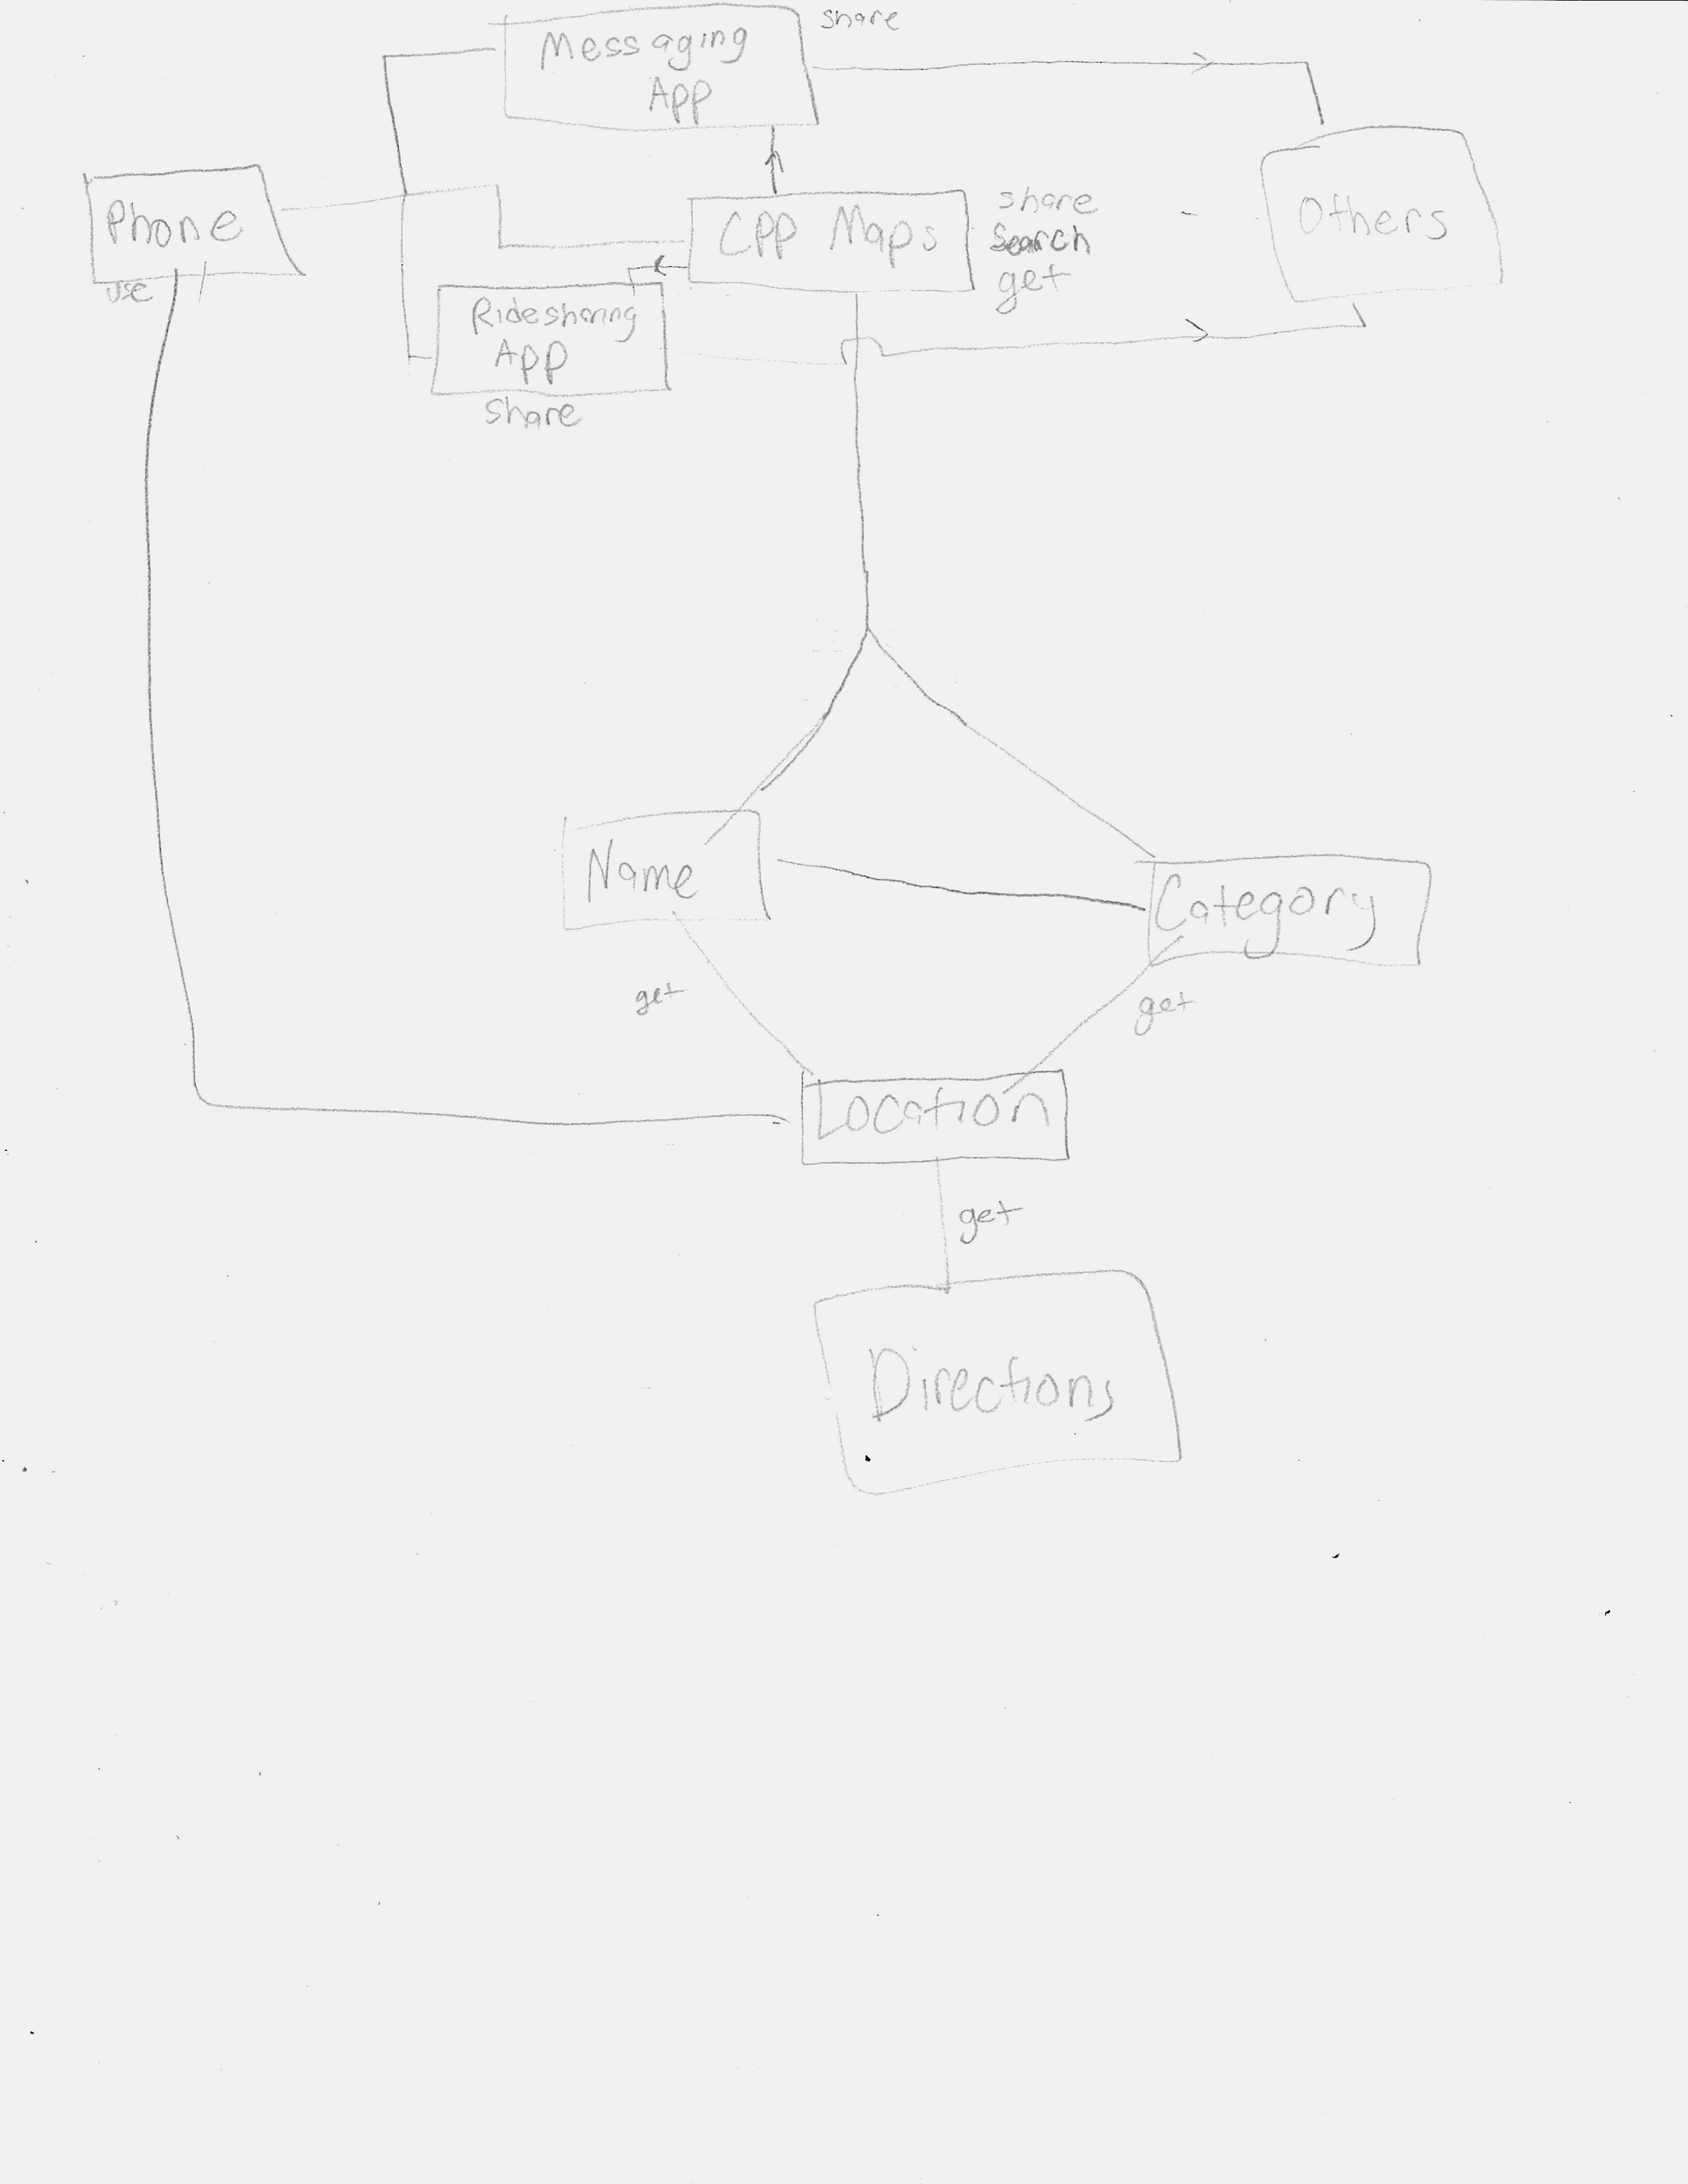 share
Messaging
App
Phone
use
CPP Maps
share
search
get
Others
Ridesharing
App
share
Name
Category
get
get
Location
get
Directions